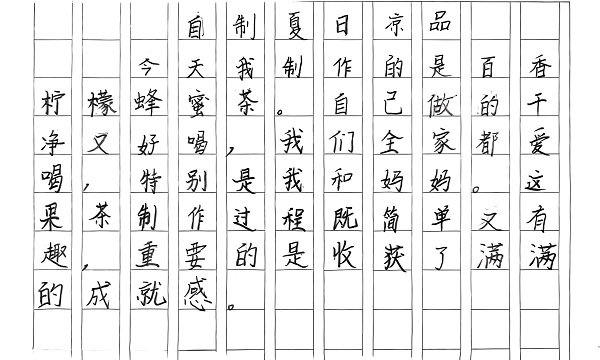 自制夏日凉品
今天我制作的是百香
柠檬蜂蜜茶。自己做的干
净又好喝，我们全家都爱
喝，特别是我和妈妈。这
果茶制作过程既简单又有
趣，重要的是收获了满满
的成就感。